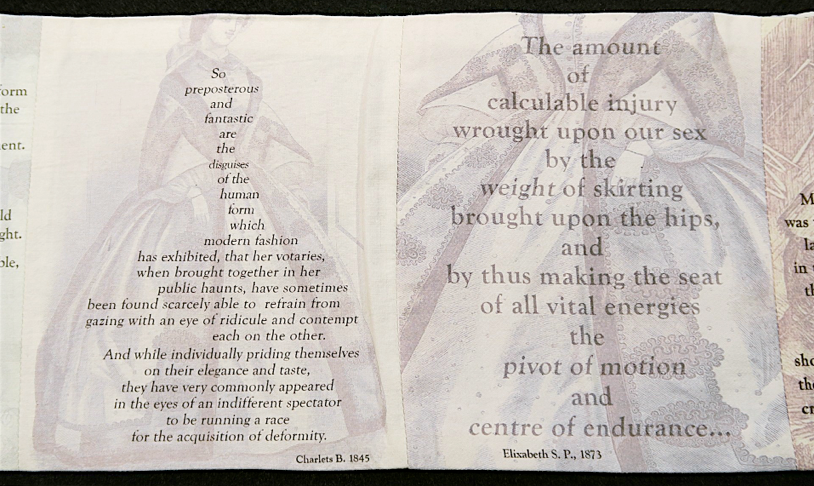 orm
the
ent.
ld
ght.
ble,
So
preposterous
and
fantastic
are
the
disguises
of the
human
form
which
modern fashion
has exhibited, that her votaries,
when brought together in her
public haunts, have sometimes
been found scarcely able to refrain from
gazing with an eye of ridicule and contempt
each on the other.
And while individually priding themselves
on their elegance and taste,
they have very commonly appeared
in the eyes of an indifferent spectator
to be running a race
for the acquisition of deformity.
Charlets B. 1845
The amount
of
calculable injury
wrought upon our sex
by the
weight of skirting
brought upon the hips,
and
by thus making the seat
of all vital energies
the
pivot of motion
and
centre of endurance...
Elixabeth S. P., 1873
M
was
la
in
th
sho
the
cr